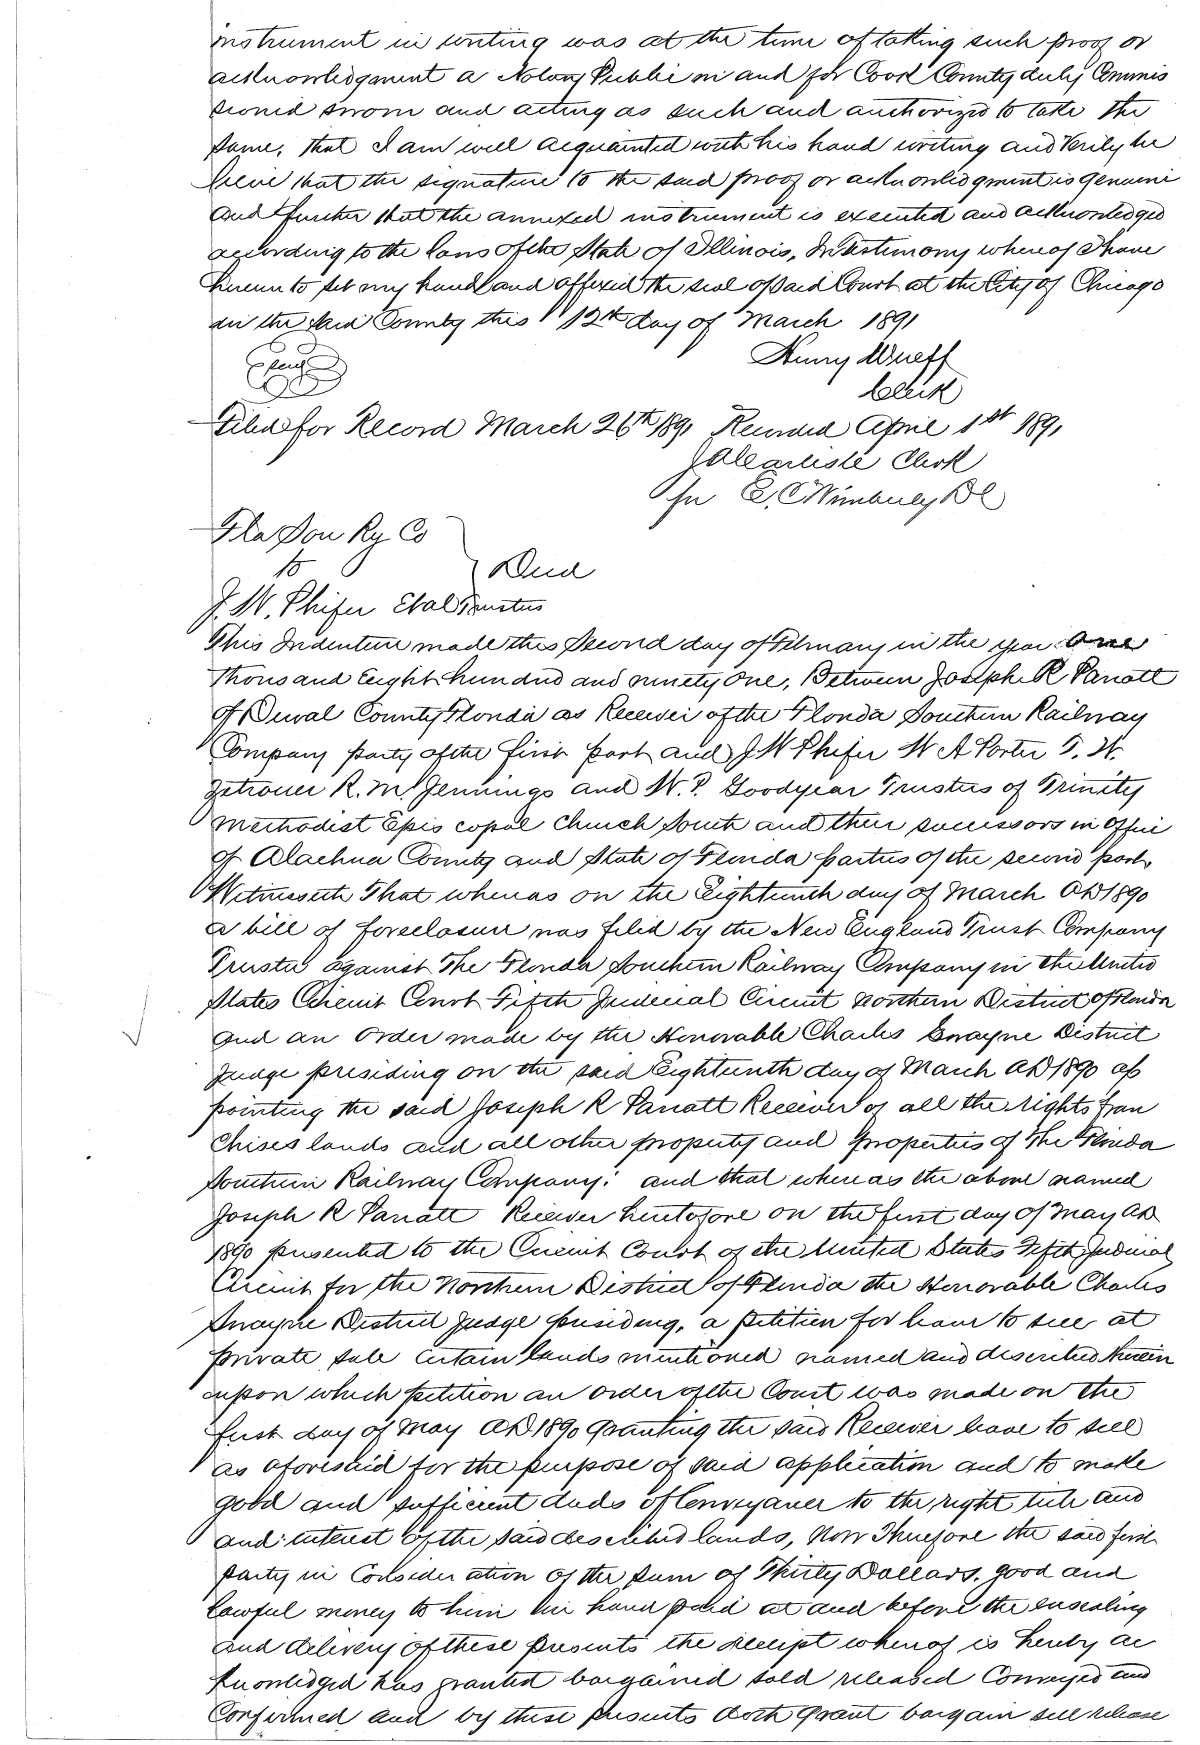 instrument in writing was at the time of taking such proof or
acknowledgment a Notary Public in and for Cook County duly Commis
sioned sworn and acting as such and authorized to take the
same, that I am well acquainted with his hand writing and verily be
lieve that the signature to the said proof or acknowledgment is genuine
and further that the annexed instrument is executed and acknowledged
according to the laws of the State of Illinois, In testimony whereof I have
hereunto set my hand and affixed the seal of said Court at the City of Chicago
in the said County this 12th day of March 1891
Henry Wulff
Clerk
Filed for Record March 26th 1891 Recorded April 1st 1891
J A Carlisle Clerk
Per E. C. Wimberly DC
Fla Sou Ry Co
to } Deed
J. W. Phifer Et al Trustees
This Indenture made this Second day of February in the year One
thousand Eight hundred and ninety one, Between Joseph R Parrott
of Duval County Florida as Receiver of the Florida Southern Railway
Company party of the first part and J W Phifer W A Porter T. W.
Zetrouer R. M. Jennings and W. P. Goodyear Trustees of Trinity
Methodist Epis copal Church South and their successors in office
of Alachua County and State of Florida parties of the second part,
Witnesseth That whereas on the Eighteenth day of March AD 1890
a bill of foreclosure was filed by the New England Trust Company
Trustee against The Florida Southern Railway Company in the United
States Circuit Court Fifth Judicial Circuit Northern District of Florida
and an order made by the Honorable Charles Swayne District
Judge presiding on the said Eighteenth day of March AD 1890 ap
pointing the said Joseph R Parrott Receiver of all the rights fran
chises lands and all other property and properties of The Florida
Southern Railway Company: and that whereas the above named
Joseph R Parrott Receiver heretofore on the first day of May AD
1890 presented to the Circuit Court of the United States Fifth Judicial
Circuit for the Northern District of Florida the Honorable Charles
Swayne District Judge presiding, a petition for leave to sell at
private sale certain lands mentioned named and described therein
upon which petition an order of the Court was made on the
first day of May AD 1890 granting the said Receiver leave to sell
as aforesaid for the purpose of said application and to make
good and sufficient deeds of Conveyance to the right title and
and interest of the said described lands, Now Therefore the said first
party in Consideration of the sum of Thirty Dollars, good and
lawful money to him in hand paid at and before the ensealing
and delivery of these presents the receipt whereof is hereby ac
knowledged has granted bargained sold released Conveyed and
Confirmed and by these presents doth grant bargain sell release